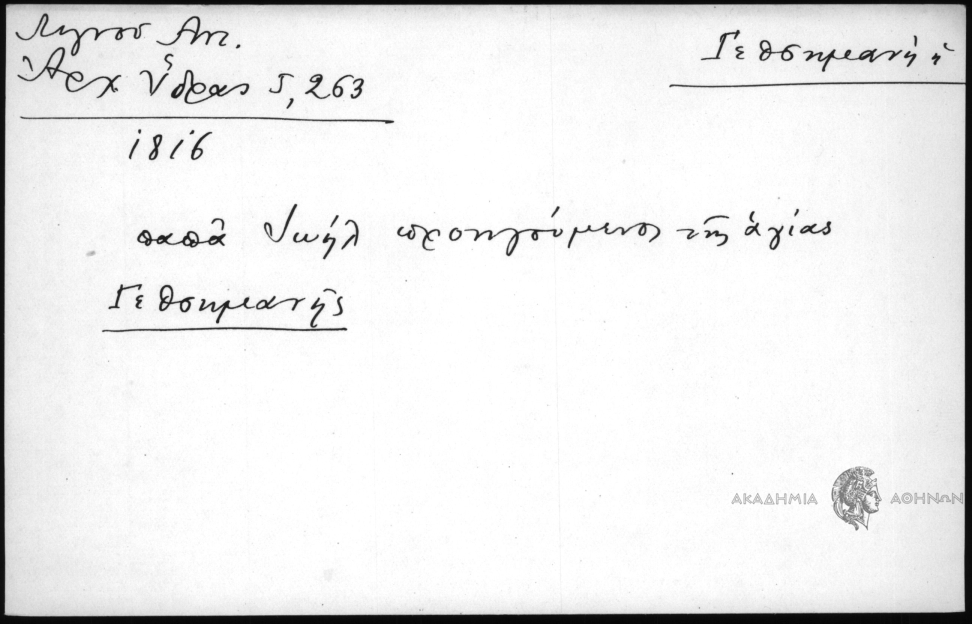 Λιγνοῦ Ἀντ.
Ἀρχ Ὕδρας 5, 263
1816
Γεθσημανή ἡ
παπᾶ Ἰωήλ προηγούμενος τῆς ἁγίας
Γεθσημανῆς
ΑΚΑΔΗΜΙΑ ΑΘΗΝΩΝ